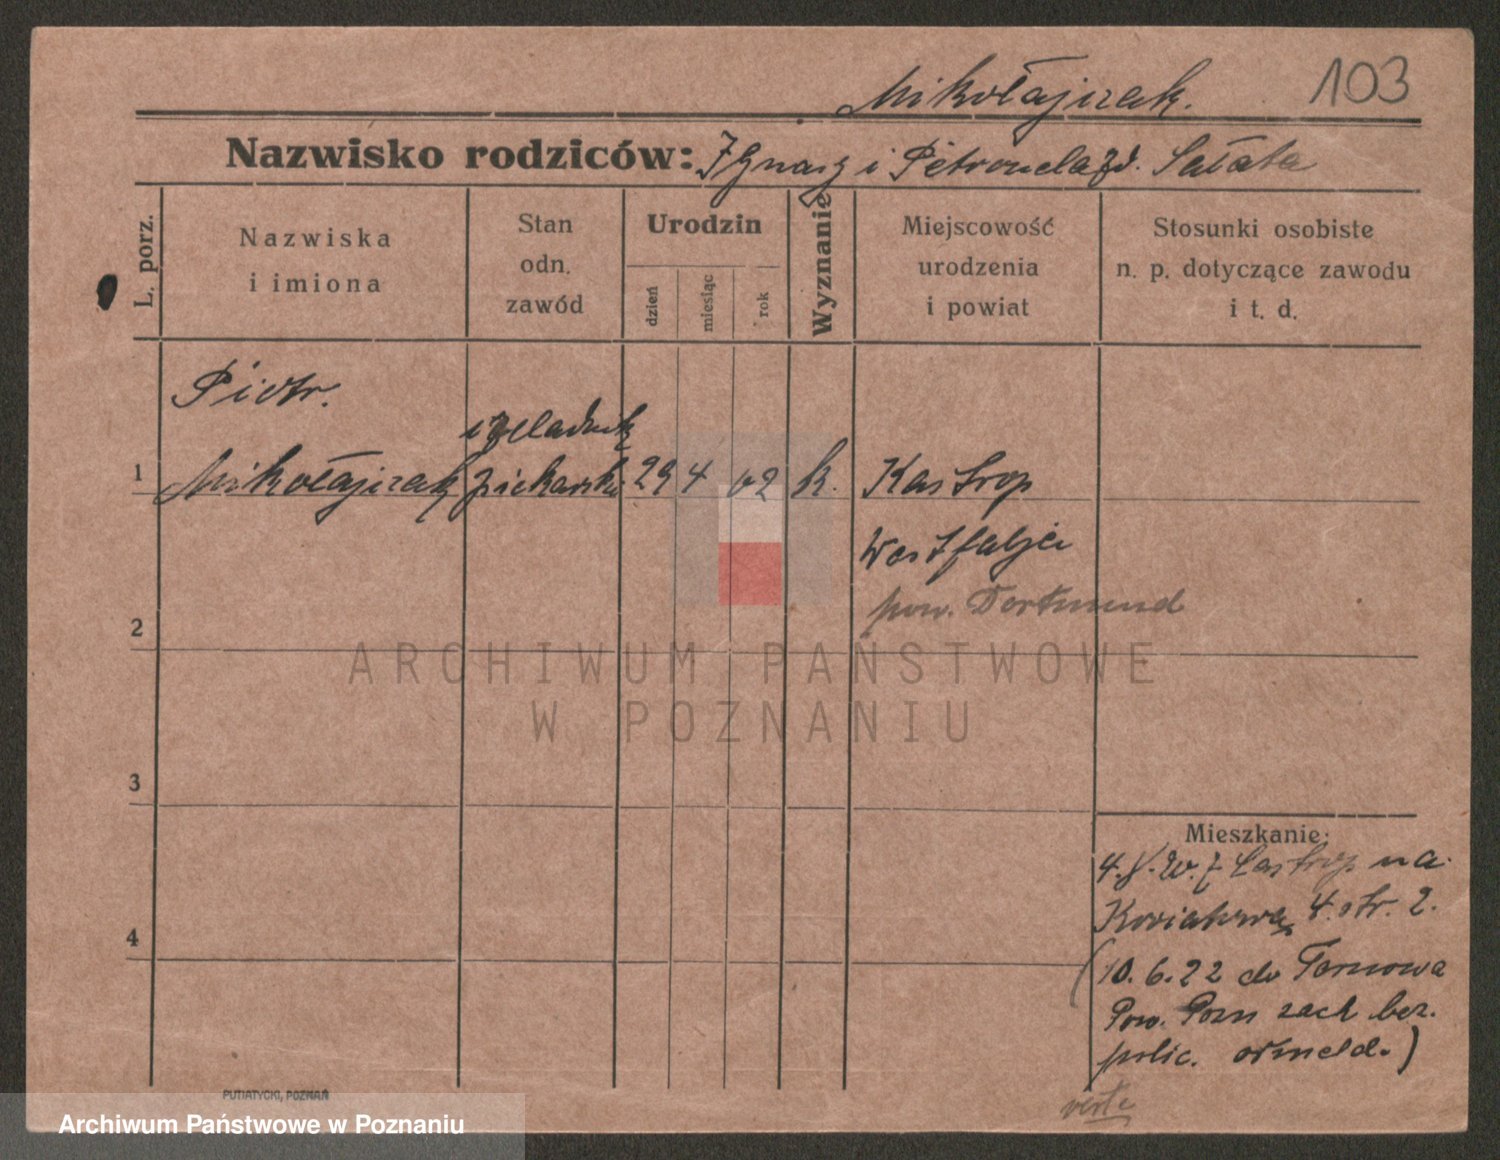 Mikołajczak. 103
Nazwisko rodziców: Ignacy i Petronela zd. Sałata
L. porz.
Nazwiska
i imiona
Stan
odn.
zawód
Urodzin
dzień
miesiąc
rok
Wyznanie
Miejscowość
urodzenia
i powiat
Stosunki osobiste
n. p. dotyczące zawodu
i t. d.
Piotr.
czeladnik
1 Mikołajczak piekarski 29 4 02 k. Kastrop
Westfalja
pow. Dortmund
2
3
Mieszkanie:
4. z Castrop na
4. str. 2.
4
(10.6.22 do Tarnowa
Pow. Pozn zach bez.
polic. odmeld.)
verte
PUTIATYCKI, POZNAŃ
ARCHIWUM PAŃSTWOWE
W POZNANIU
Archiwum Państwowe w Poznaniu